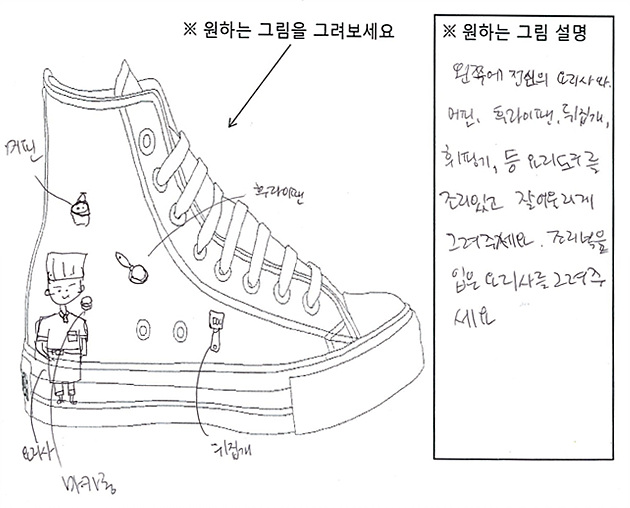 ※ 원하는 그림을 그려보세요
※ 원하는 그림 설명
왼쪽에 전신의 요리사와
머핀, 후라이팬, 뒤집개,
휘핑기, 등 요리도구를
조리있고 잘어우러지게
그려주세요. 조리복을
입은 요리사를 그려주
세요
머핀
후라이팬
요리사
마카롱
뒤집개